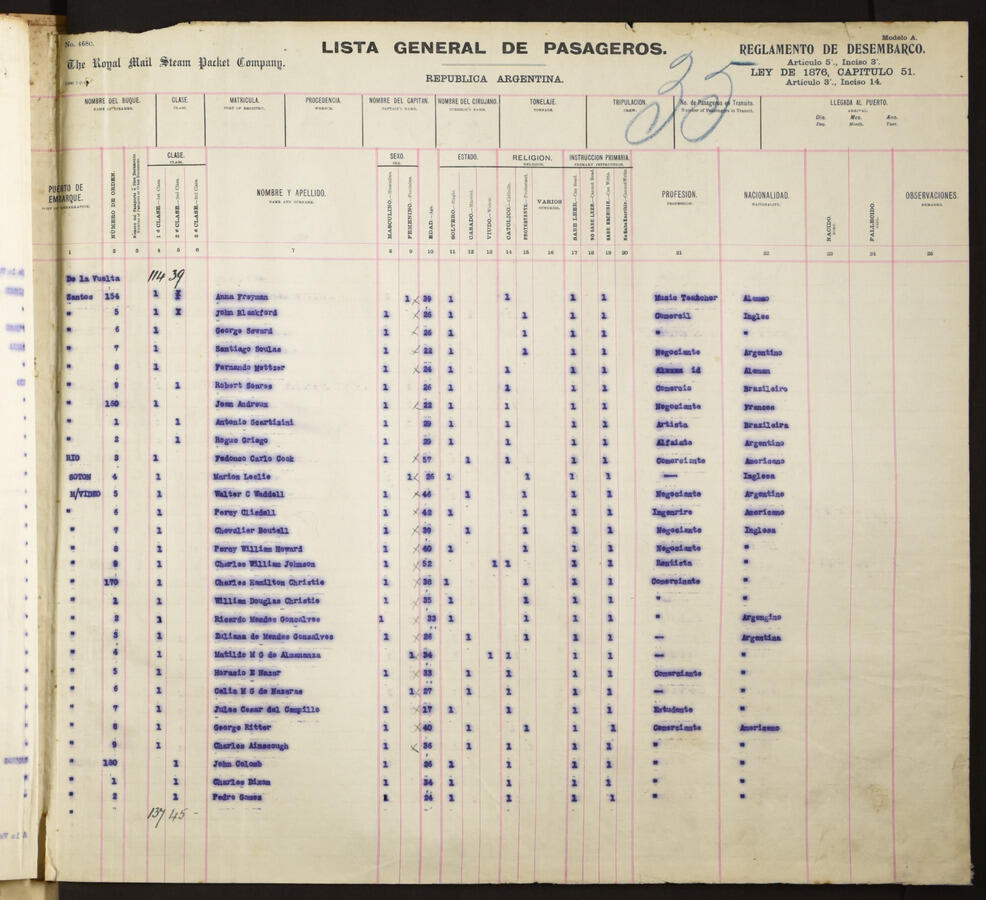 No. 468c.
The Royal Mail Steam Packet Company.
LISTA GENERAL DE PASAGEROS.
REPUBLICA ARGENTINA.
Modelo A.
REGLAMENTO DE DESEMBARCO.
Articulo 5°., Inciso 3°.
LEY DE 1876, CAPITULO 51.
Articulo 3°., Inciso 14.
35
NOMBRE DEL BUQUE. CLASE. MATRICULA. PROCEDENCIA. NOMBRE DEL CAPITAN. NOMBRE DEL CIRUJANO. TONELAJE. TRIPULACION. No. de Pasageros en Transito. LLEGADA AL PUERTO.
NAME OF STEAMER. CLASS. PORT OF REGISTRY. WHENCE. CAPTAIN'S NAME. SURGEON'S NAME. TONNAGE. CREW. Number of Passengers in Transit. ARRIVAL.
Dia. Mes. Ano.
Day. Month. Year.
PUERTO DE EMBARQUE. NÚMERO DE ORDEN. CLASE. NOMBRE Y APELLIDO. SEXO. ESTADO. RELIGION. INSTRUCCION PRIMARIA. PROFESION. NACIONALIDAD. OBSERVACIONES.
CLASS. NAME AND SURNAME. SEX. RELIGION. PRIMARY INSTRUCTION. PROFESSION. NATIONALITY. REMARKS.
1ª CLASE.—1st Class. 2ª CLASE.—2nd Class. 3ª CLASE.—3rd Class. MASCULINO.—Masculine. FEMENINO.—Feminine. EDAD.—Age. SOLTERO.—Single. CASADO.—Married. VIUDO.—Widow. CATOLICO.—Catholic. PROTESTANTE.—Protestant. VARIOS SABE LEER.—Can Read. NO SABE LEER.—Cannot Read. SABE ESCRIBIR.—Can Write. No Sabe Escribir.—Cannot Write. NACIDO. FALLECIDO.
1 2 3 4 5 6 7 8 9 10 11 12 13 14 15 16 17 18 19 20 21 22 23 24 25
De la Vuelta 114 39
Santos 154 1 Anna Freyman 1 39 1 1 1 1 Music Teatcher Aleman
" 5 1 John Blackford 1 26 1 1 1 1 Comercil Ingles
" 6 1 George Seward 1 26 1 1 1 1 " "
" 7 1 Santiago Soulas 1 22 1 1 1 1 Negociante Argentino
" 8 1 Fernando Mettzer 1 24 1 1 1 1 id Aleman
" 9 1 Robert Soares 1 26 1 1 1 1 Comercio Brazileiro
" 160 1 Jean Andreux 1 22 1 1 1 1 Negociante Frances
" 1 1 Antonio Scartizini 1 29 1 1 1 1 Artista Brazileira
" 2 1 Rogue Griego 1 29 1 1 1 1 Alfaiate Argentino
RIO 3 1 Fedonso Carlo Cook 1 57 1 1 1 1 Comerciante Americano
SOTON 4 1 Marion Leslie 1 26 1 1 1 1 — Inglesa
M/VIDEO 5 1 Walter C Waddell 1 46 1 1 1 1 Negociante Argentino
" 6 1 Percy Clisdell 1 42 1 1 1 1 Ingenriro Americano
" 7 1 Chevalier Boutell 1 39 1 1 1 1 Negociante Inglesa
" 8 1 Percy William Howard 1 40 1 1 1 1 Negociante "
" 9 1 Charles William Johnson 1 52 1 1 1 1 Rentista "
" 170 1 Charles Hamilton Christie 1 36 1 1 1 1 Comercinate "
" 1 1 William Douglas Christie 1 35 1 1 1 1 " "
" 2 1 Ricardo Mendes Goncalves 1 33 1 1 1 1 " Argengino
" 3 1 Zuliana de Mendes Gonzalves 1 26 1 1 1 1 — Argentina
" 4 1 Matilde M G de Almananza 1 34 1 1 1 1 — "
" 5 1 Horacio E Nazar 1 33 1 1 1 1 Comerciante "
" 6 1 Celia M G de Nazaras 1 27 1 1 1 1 — "
" 7 1 Jules Cesar del Campillo 1 17 1 1 1 1 Estudante "
" 8 1 George Ritter 1 40 1 1 1 1 Comerciante Americano
" 9 1 Charles Ainscough 1 36 1 1 1 1 " "
" 180 1 John Colomb 1 26 1 1 1 1 " "
" 1 1 Charles Dixon 1 34 1 1 1 1 " "
" 2 1 Pedro Gomez 1 24 1 1 1 1 " "
" 137 45 -